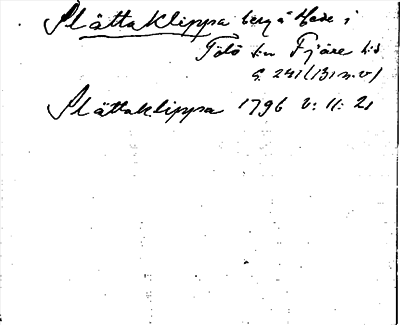 Slättaklippa berg å Hede i
Tölö s:n Fjäre h:d
G 241 (131 n.v)
Slättaklippa 1796 v: 11: 21